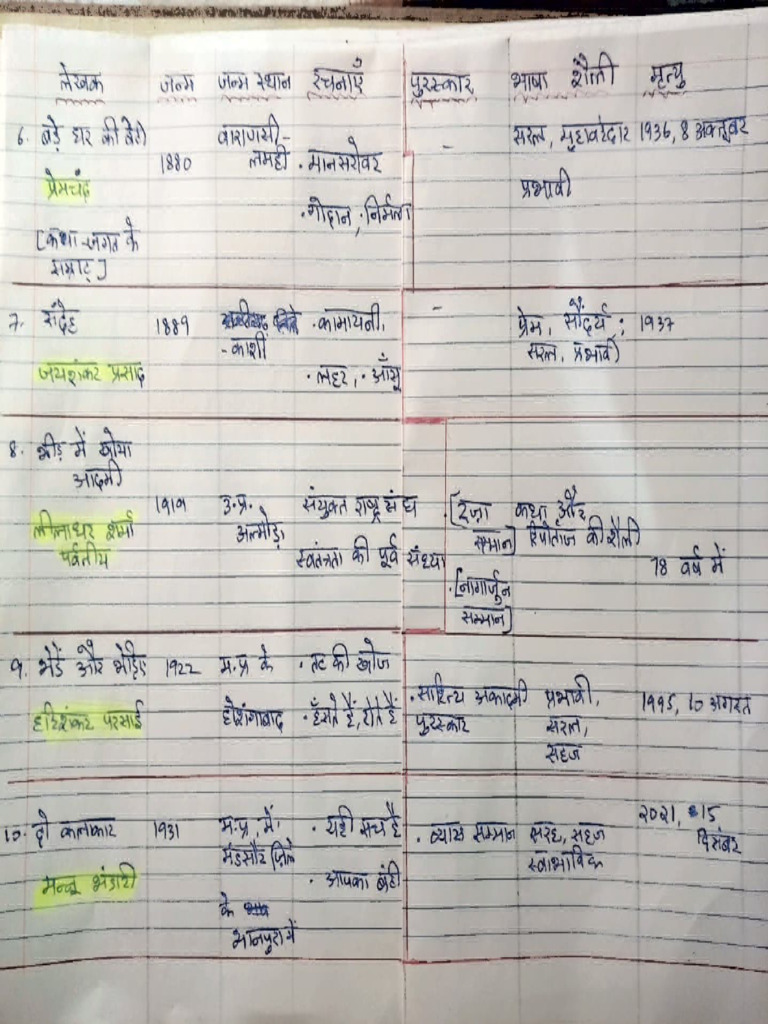 लेखक जन्म जन्म स्थान रचनाएँ पुरस्कार भाषा शैली मृत्यु
6. बड़े घर की बेटी 1880 वाराणसी - सरल, मुहावरेदार 1936, 8 अक्तूबर
लमही . मानसरोवर -
प्रेमचंद . गोदान, . निर्मला प्रभावी
[कथा - जगत के
सम्राट]
7. संदेह 1889 . कामायनी, - प्रेम, सौंदर्य ; 1937
- काशी सरल, प्रभावी
जयशंकर प्रसाद . लहर, . आँसू
8. भीड़ में खोया
आदमी
1919 उ.प्र. संयुक्त राष्ट्र संघ . [इज़ा कथा और
लीलाधर शर्मा अल्मोड़ा सम्मान] रिपोर्ताज की शैली
पर्वतीय स्वतंत्रता की पूर्व संध्या 78 वर्ष में
. [नागार्जुन
सम्मान]
9. भेड़ें और भेड़िए 1922 म.प्र के . तट की खोज
हरिशंकर परसाई होशंगाबाद . हँसते हैं, रोते हैं . साहित्य अकादमी प्रभावी, 1995, 10 अगस्त
पुरस्कार सरल,
सहज
10. दो कलाकार 1931 म.प्र. में . यही सच है . व्यास सम्मान सरल, सहज 2021, 15
मंदसौर ज़िले स्वाभाविक दिसंबर
मन्नू भंडारी . आपका बंटी
के
भानपुरा में